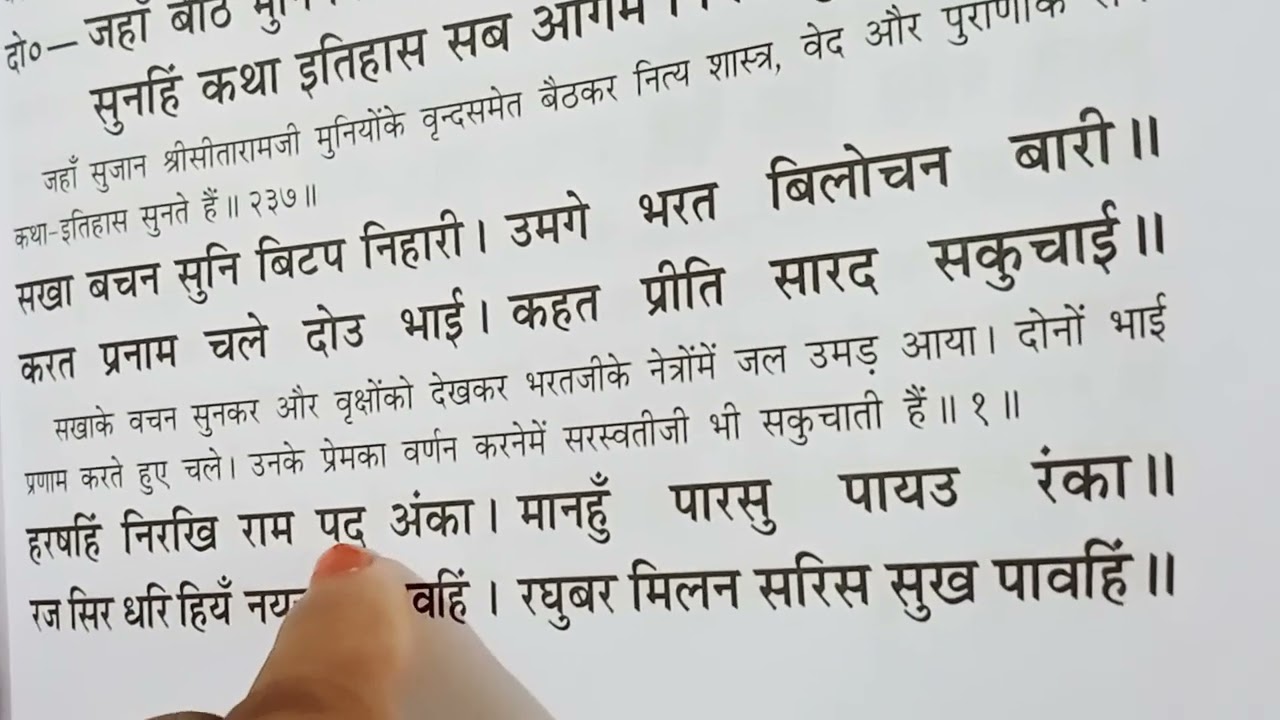 दो०— जहाँ बैठि
सुनहिं कथा इतिहास सब आगम
जहाँ सुजान श्रीसीतारामजी मुनियोंके वृन्दसमेत बैठकर नित्य शास्त्र, वेद और पुराणोंके
कथा-इतिहास सुनते हैं॥ २३७॥
सखा बचन सुनि बिटप निहारी। उमगे भरत बिलोचन बारी॥
करत प्रनाम चले दोउ भाई। कहत प्रीति सारद सकुचाई॥
सखाके वचन सुनकर और वृक्षोंको देखकर भरतजीके नेत्रोंमें जल उमड़ आया। दोनों भाई
प्रणाम करते हुए चले। उनके प्रेमका वर्णन करनेमें सरस्वतीजी भी सकुचाती हैं॥ १॥
हरषहिं निरखि राम पद अंका। मानहुँ पारसु पायउ रंका॥
रज सिर धरि हियँ वहिं। रघुबर मिलन सरिस सुख पावहिं॥